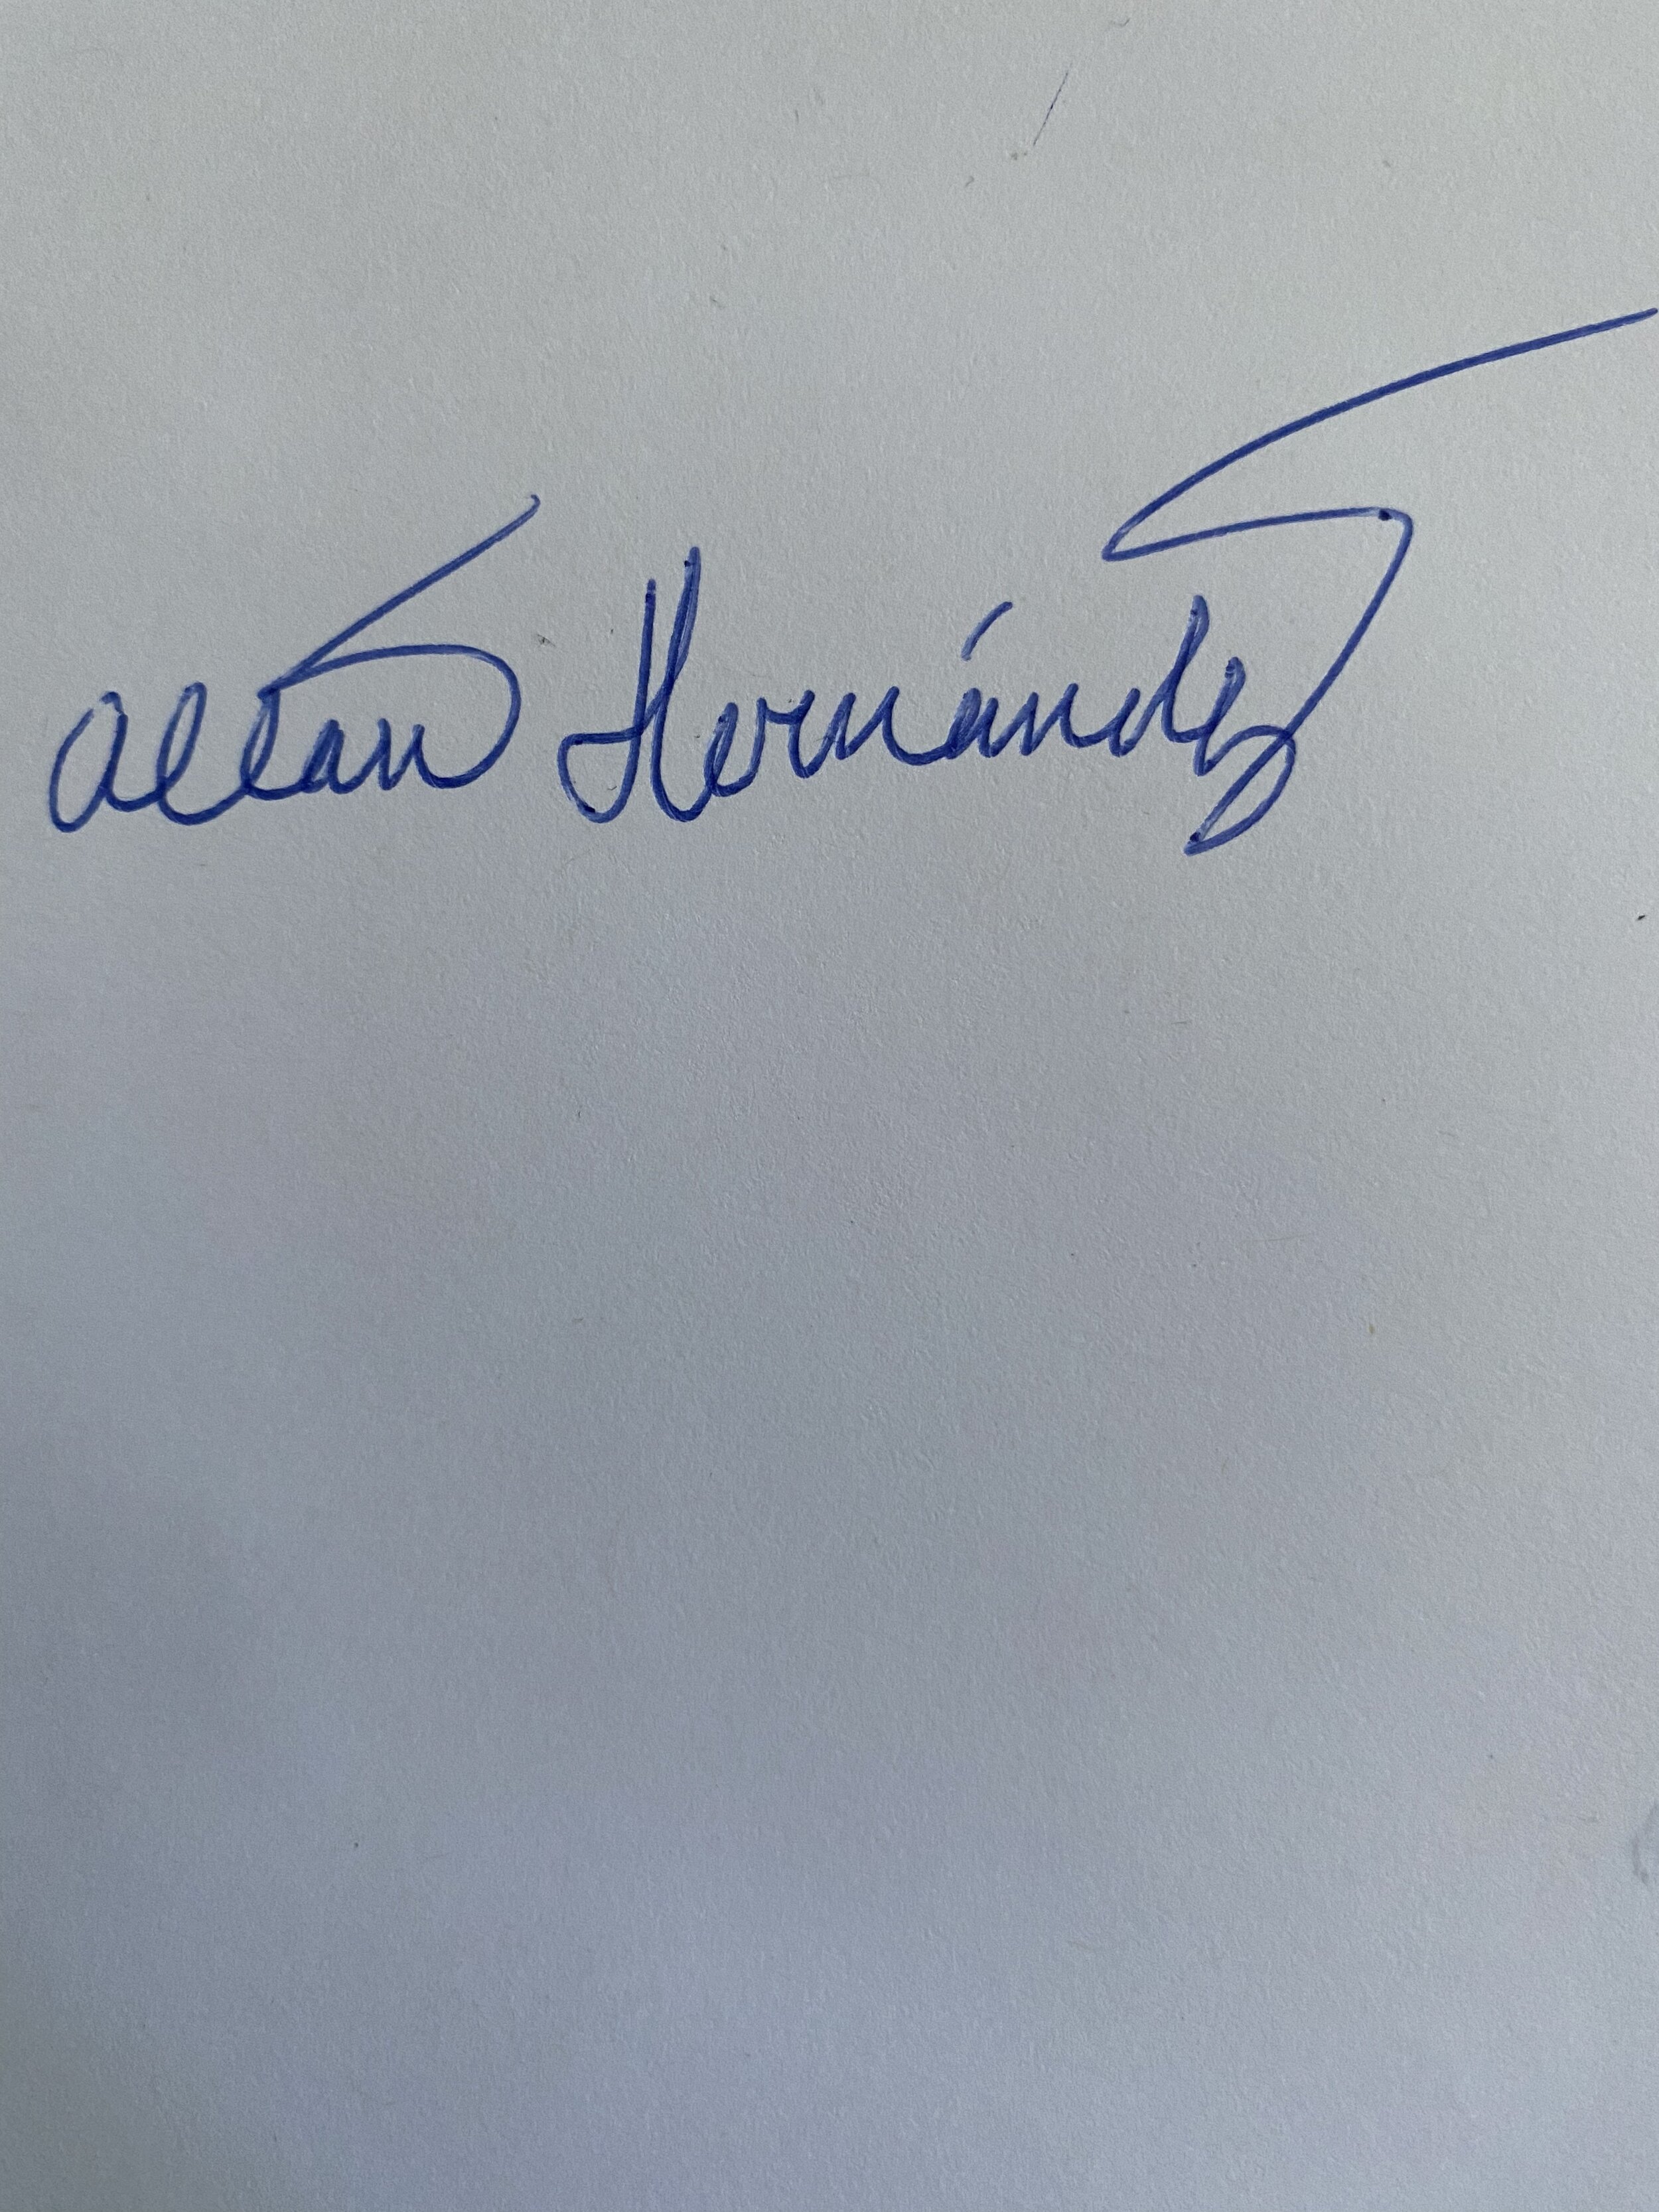 Allan Hernández